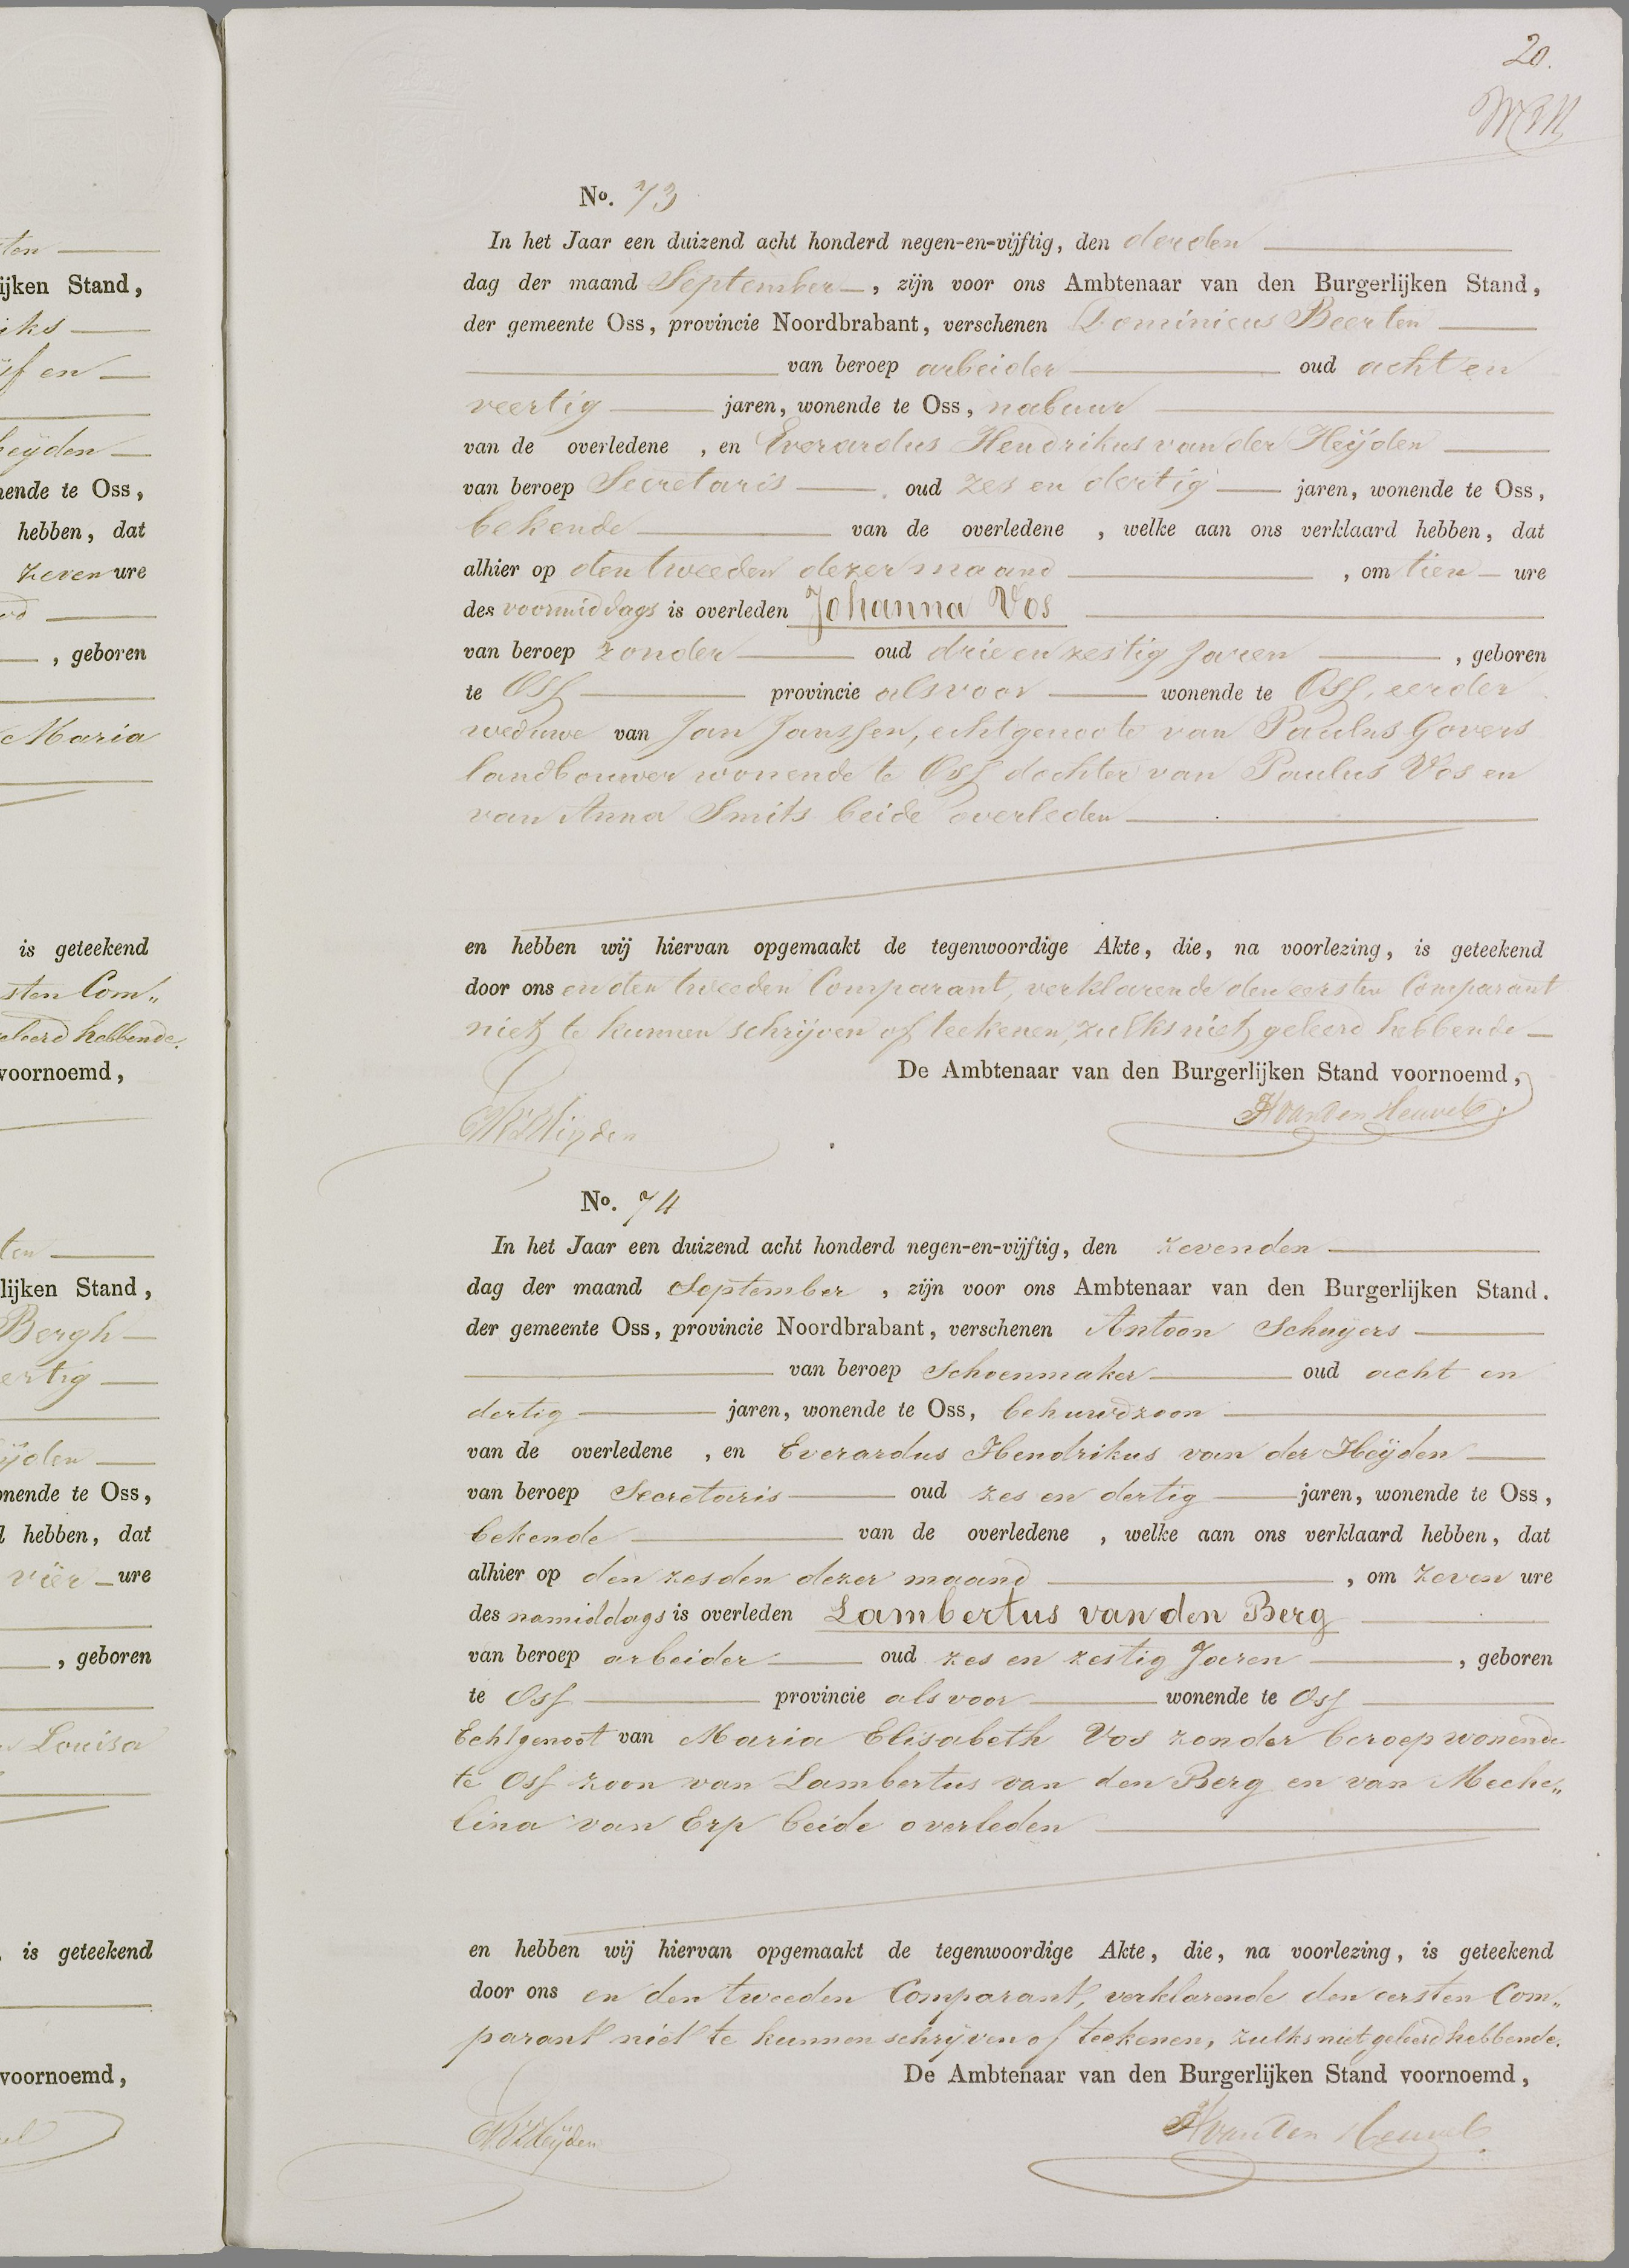 ten
ijken Stand,
iks
ijf en
heijden
nende te Oss,
hebben, dat
zeven ure
, geboren
Maria
is geteekend
sten Com„
geleerd hebbende.
voornoemd,
ten
lijken Stand,
Bergh
ertig
ijden
nende te Oss,
hebben, dat
vier ure
, geboren
Louisa
is geteekend
voornoemd,
20.
No. 73
In het Jaar een duizend acht honderd negen-en-vijftig, den derden
dag der maand September, zijn voor ons Ambtenaar van den Burgerlijken Stand,
der gemeente Oss, provincie Noordbrabant, verschenen Dominicus Beerten
van beroep arbeider oud acht en
veertig jaren, wonende te Oss, nabuur
van de overledene , en Everardus Hendrikus van der Heijden
van beroep Secretaris oud zes en dertig jaren, wonende te Oss,
bekende van de overledene , welke aan ons verklaard hebben, dat
alhier op den tweeden dezer maand , om tien ure
des voormiddags is overleden Johanna Vos
van beroep zonder oud drie en zestig Jaren , geboren
te Oss provincie als voor wonende te Oss, eerder
weduwe van Jan Janssen, echtgenoote van Paulus Govers
landbouwer wonende te Oss dochter van Paulus Vos en
van Anna Smits beide overleden
en hebben wij hiervan opgemaakt de tegenwoordige Akte, die, na voorlezing, is geteekend
door ons en den tweeden Comparant, verklarende den eersten Comparant
niet te kunnen schrijven of teekenen, zulks niet geleerd hebbende
De Ambtenaar van den Burgerlijken Stand voornoemd,
van den Heuvel
Heijden
No. 74
In het Jaar een duizend acht honderd negen-en-vijftig, den zevenden
dag der maand September , zijn voor ons Ambtenaar van den Burgerlijken Stand.
der gemeente Oss, provincie Noordbrabant, verschenen Antoon Schuijers
van beroep Schoenmaker oud acht en
dertig jaren, wonende te Oss, behuwdzoon
van de overledene , en Everardus Hendrikus van der Heijden
van beroep Secretaris oud zes en dertig jaren, wonende te Oss,
bekende van de overledene , welke aan ons verklaard hebben, dat
alhier op den zesden dezer maand , om zeven ure
des namiddags is overleden Lambertus van den Berg
van beroep arbeider oud zes en zestig Jaren , geboren
te Oss provincie als voor wonende te Oss
Echtgenoot van Maria Elisabeth Vos zonder beroep wonende
te Oss zoon van Lambertus van den Berg en van Meche„
lina van Erp beide overleden
en hebben wij hiervan opgemaakt de tegenwoordige Akte, die, na voorlezing, is geteekend
door ons en den tweeden Comparant, verklarende den eersten Com„
parant niet te kunnen schrijven of teekenen, zulks niet geleerd hebbende.
De Ambtenaar van den Burgerlijken Stand voornoemd,
van den Heuvel
Heijden